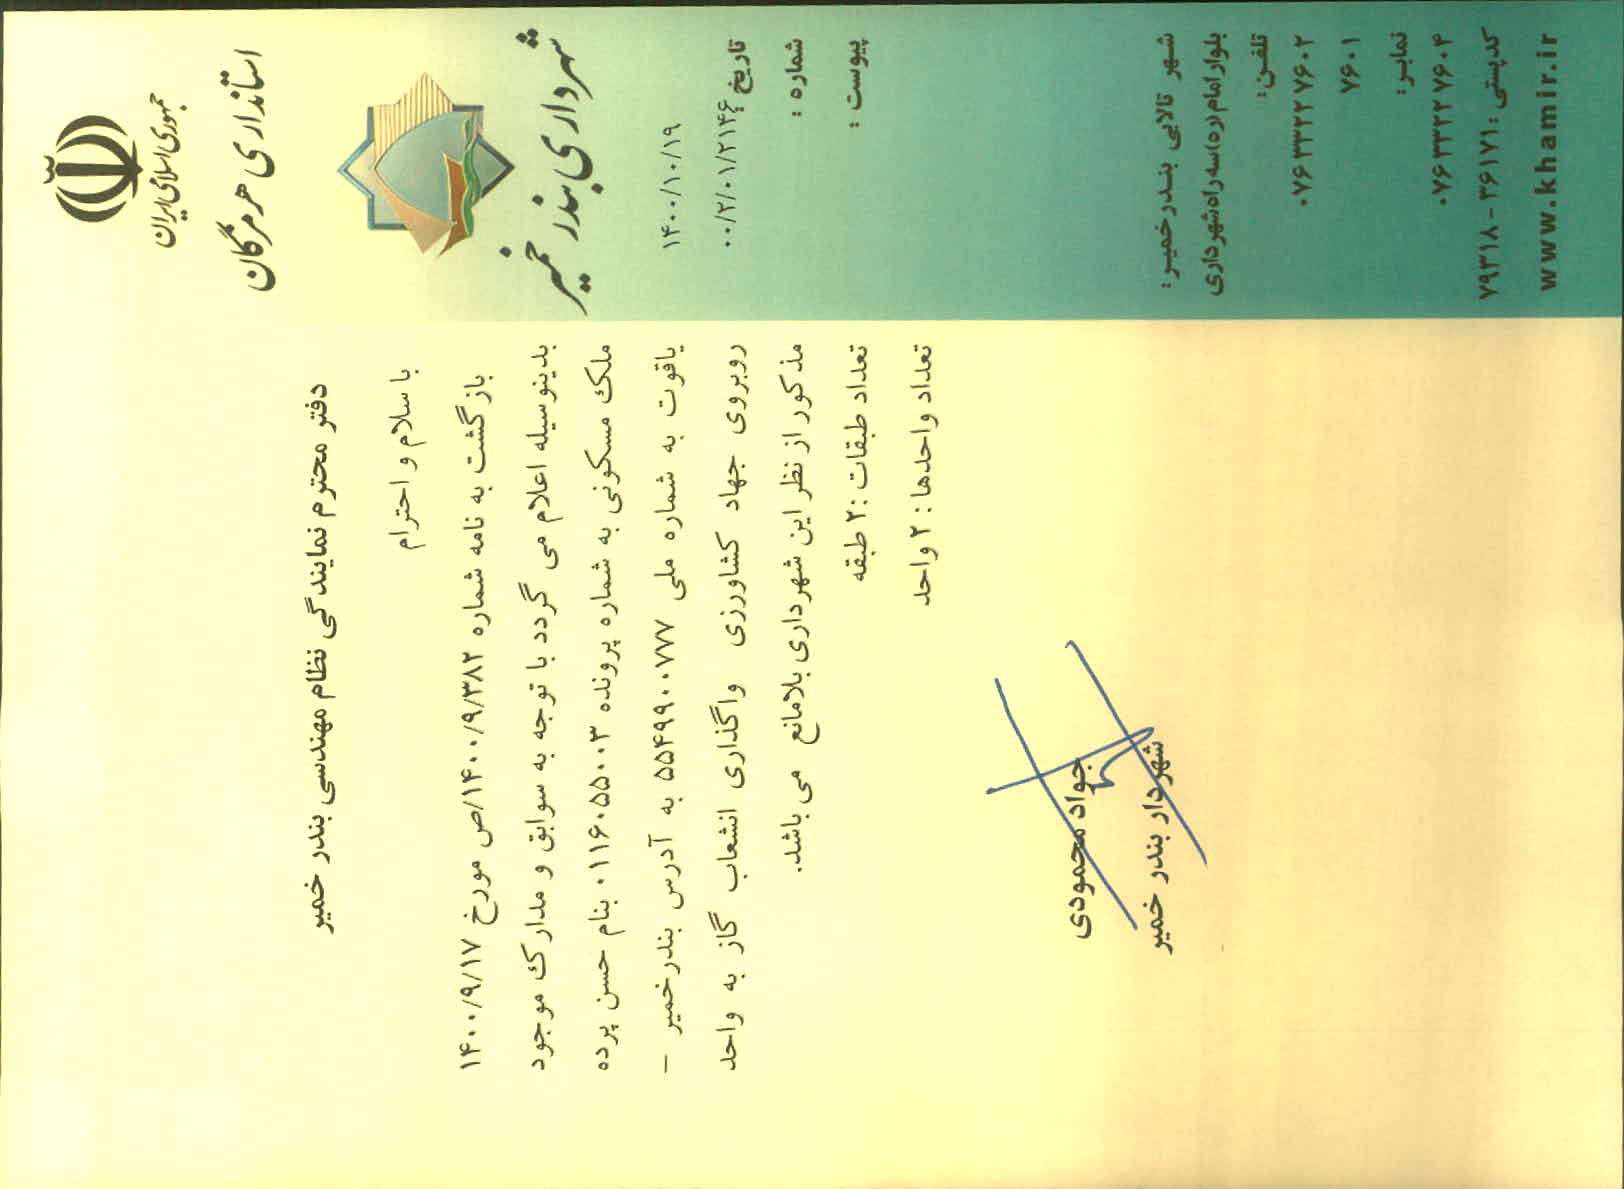 جمهوری اسلامی ایران
استانداری هرمزگان
شهرداری بندر خمیر
۱۴۰۰/۱۰/۱۹
تاریخ :
۰۰/۲/۰۱/۲۱۴۶
شماره :
پیوست :
دفتر محترم نمایندگی نظام مهندسی بندر خمیر
با سلام و احترام
بازگشت به نامه شماره ۱۴۰۰/۹/۳۸۲/ص مورخ ۱۴۰۰/۹/۱۷
بدینوسیله اعلام می گردد با توجه به سوابق و مدارک موجود
ملک مسکونی به شماره پرونده ۰۱۱۶۰۵۵۰۰۳ بنام حسن پرده
یاقوت به شماره ملی ۵۵۴۹۹۰۰۷۷۷ به آدرس بندرخمیر –
روبروی جهاد کشاورزی واگذاری انشعاب گاز به واحد
مذکور از نظر این شهرداری بلامانع می باشد.
تعداد طبقات : ۲ طبقه
تعداد واحدها : ۲ واحد
جواد محمودی
شهردار بندر خمیر
شهر تالابی بندرخمیر:
بلوار امام(ره)سه راه شهرداری
تلفن:
۰۷۶۳۳۲۲۷۶۰۲
۷۶۰۱
نمابر:
۰۷۶۳۳۲۲۷۶۰۴
کدپستی : ۳۶۱۷۱ - ۷۹۳۱۸
www.khamir.ir